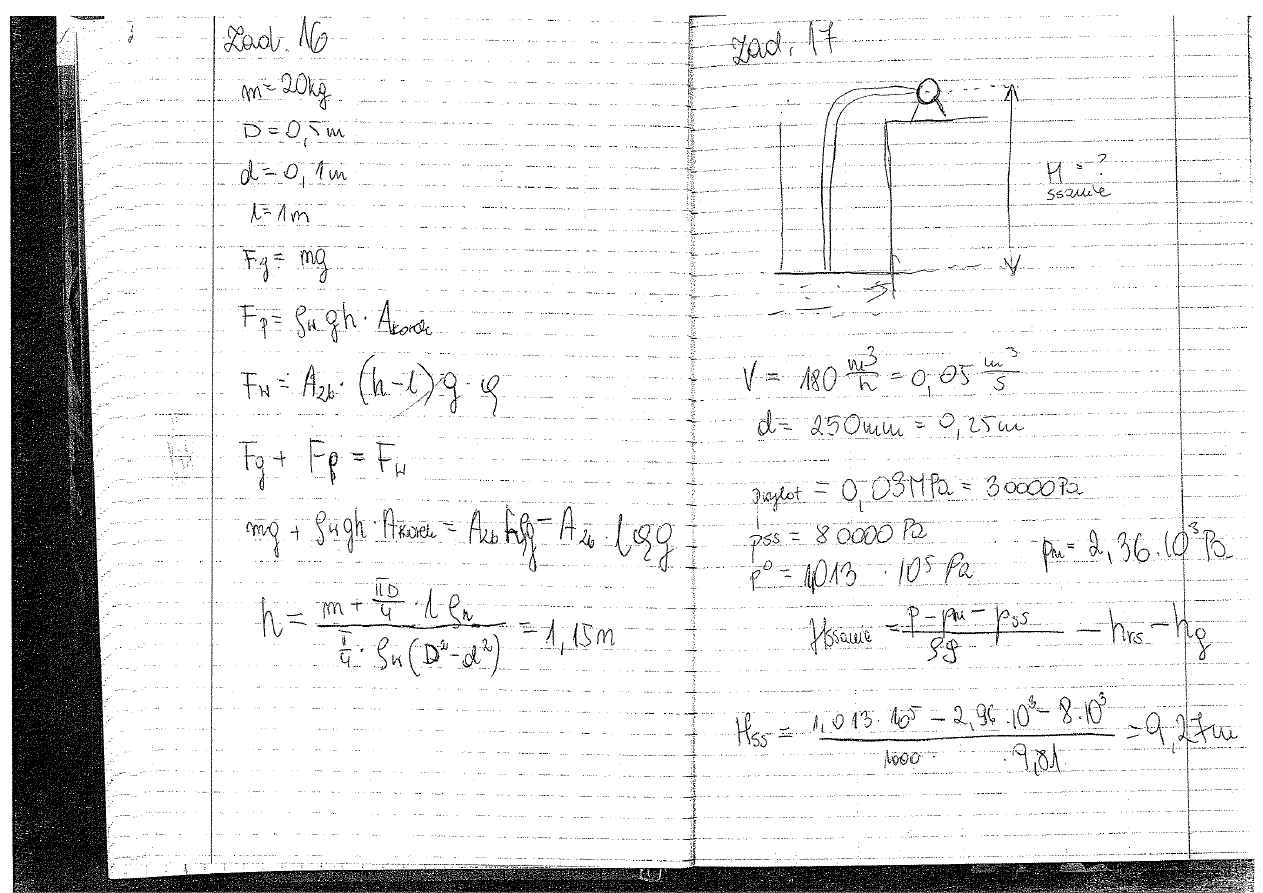 Zad. 16
m = 20kg
D = 0,5m
d = 0,1m
l = 1m
Fg = mg
Fp = ϱH gh · A
FH = A2b · (h - l) · g · ϱ
Fg + Fp = FH
mg + ϱHgh · A = A2b hϱg - A2b · lϱg
h = \frac{m + \frac{πD}{4} · l ϱH}{\frac{π}{4} · ϱH (D² - d²)} = 1,15m
Zad. 17
H = ?
ssanie
V = 180 m³/h = 0,05 m³/s
d = 250mm = 0,25m
pwylot = 0,03MPa = 30000Pa
pss = 80000 Pa
p⁰ = 1,013 · 10⁵ Pa
pm = 2,36 · 10³ Pa
Hssanie = \frac{p - pm - pss}{ϱg} - hrs - hg
Hss = \frac{1,013 · 10⁵ - 2,96 · 10³ - 8 · 10³}{1000 · 9,81} = 9,27m